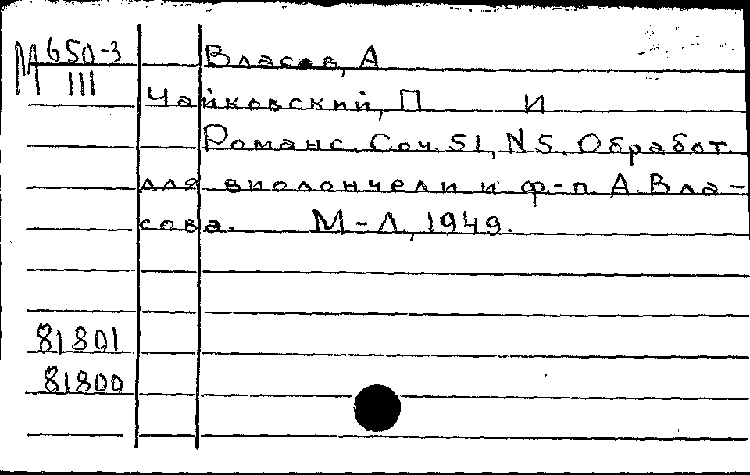 М 650-3
III
Власов, А
Чайковский, П И
Романс. Соч. 51, N 5. Обработ.
для виолончели и ф-п. А. Вла-
сова. М-Л, 1949.
81801
81800